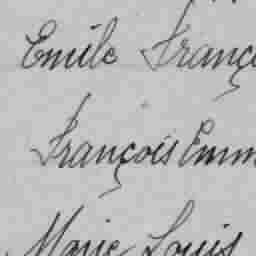 Emile Franç
François Emm
Marie Louis